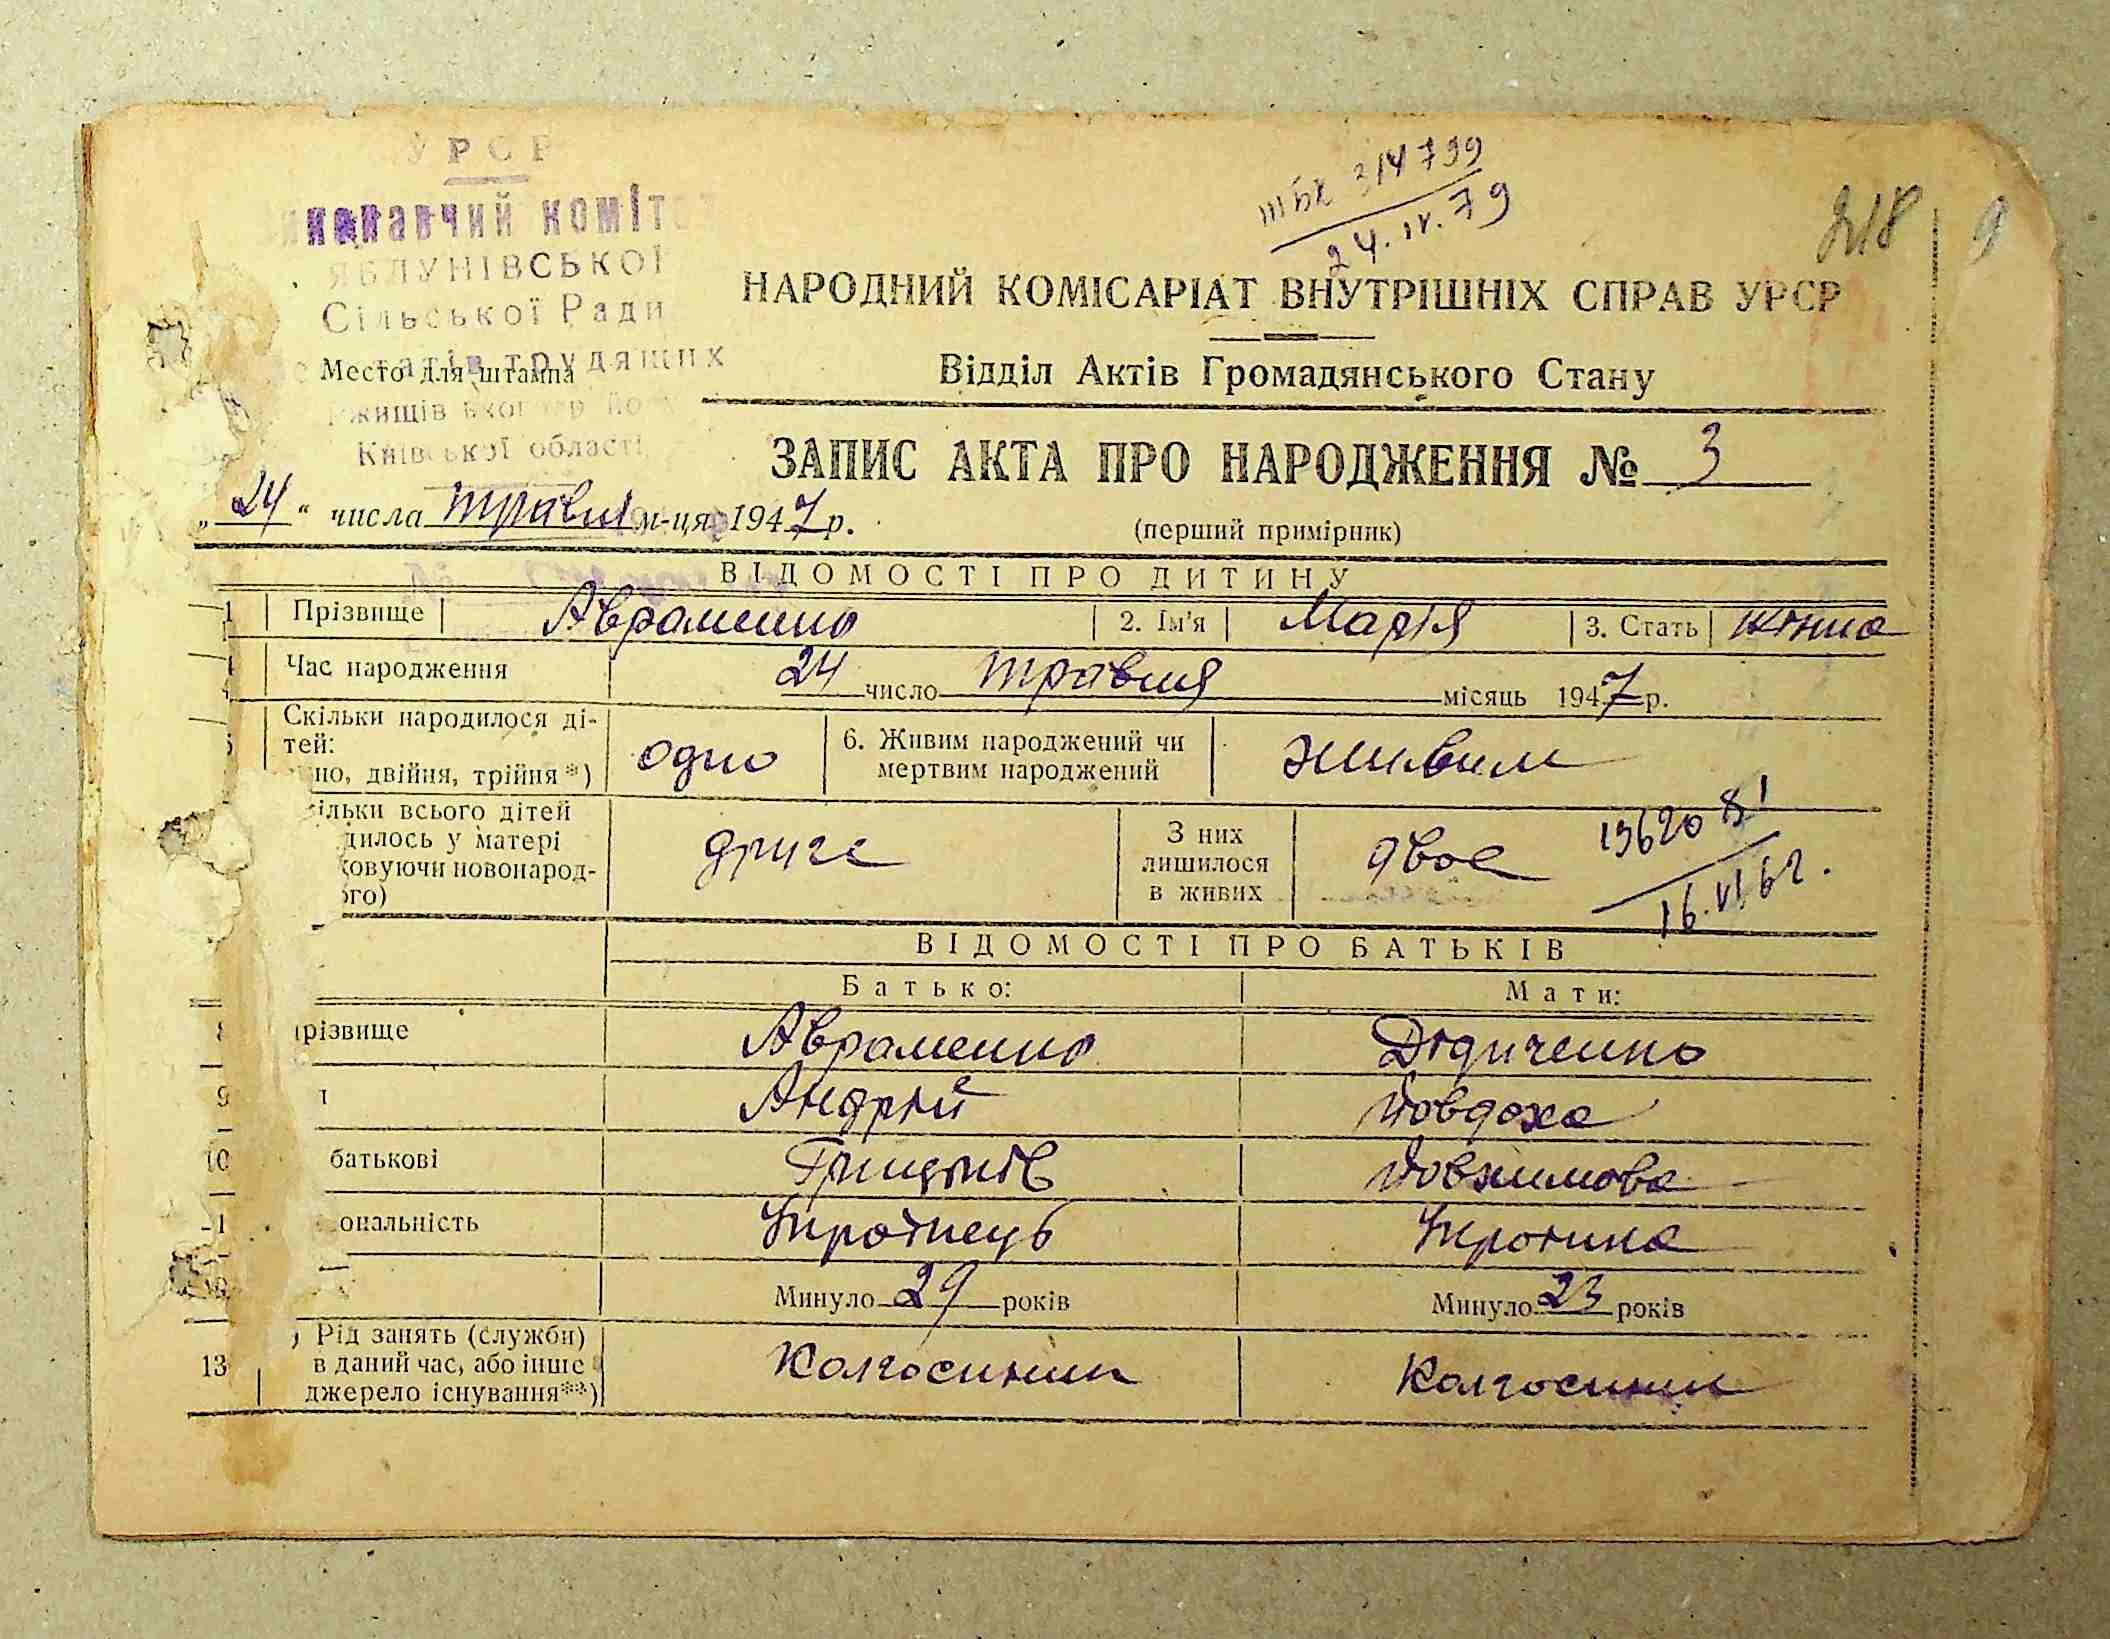 УРСР
ЯБЛУНІВСЬКОЇ
Сільської Ради
Место для штампа
трудящих
Київської області
ІІІБХ 314799
24.IV.79
218
9
НАРОДНИЙ КОМІСАРІАТ ВНУТРІШНІХ СПРАВ УРСР
Відділ Актів Громадянського Стану
ЗАПИС АКТА ПРО НАРОДЖЕННЯ № 3
„24“ числа травня м-ця 1947 р.
(перший примірник)
ВІДОМОСТІ ПРО ДИТИНУ
1 Прізвище Авраменко 2. Ім'я Марія 3. Стать жіноча
Час народження 24 число травня місяць 1947 р.
Скільки народилося ді-
тей:
но, двійня, трійня*) одно 6. Живим народжений чи
мертвим народжений живим
ільки всього дітей
дилось у матері
овуючи новонарод-
ого) друге З них
лишилося
в живих двоє
19620
16.VI.62.
ВІДОМОСТІ ПРО БАТЬКІВ
Батько: Мати:
різвище Авраменко Дідиченко
9 Андрій Явдоха
10 батькові Грицьків Явхимова
ональність Українець Українка
Минуло 29 років Минуло 23 років
13 Рід занять (служби)
в даний час, або інше
джерело існування**) Колгоспник Колгоспник